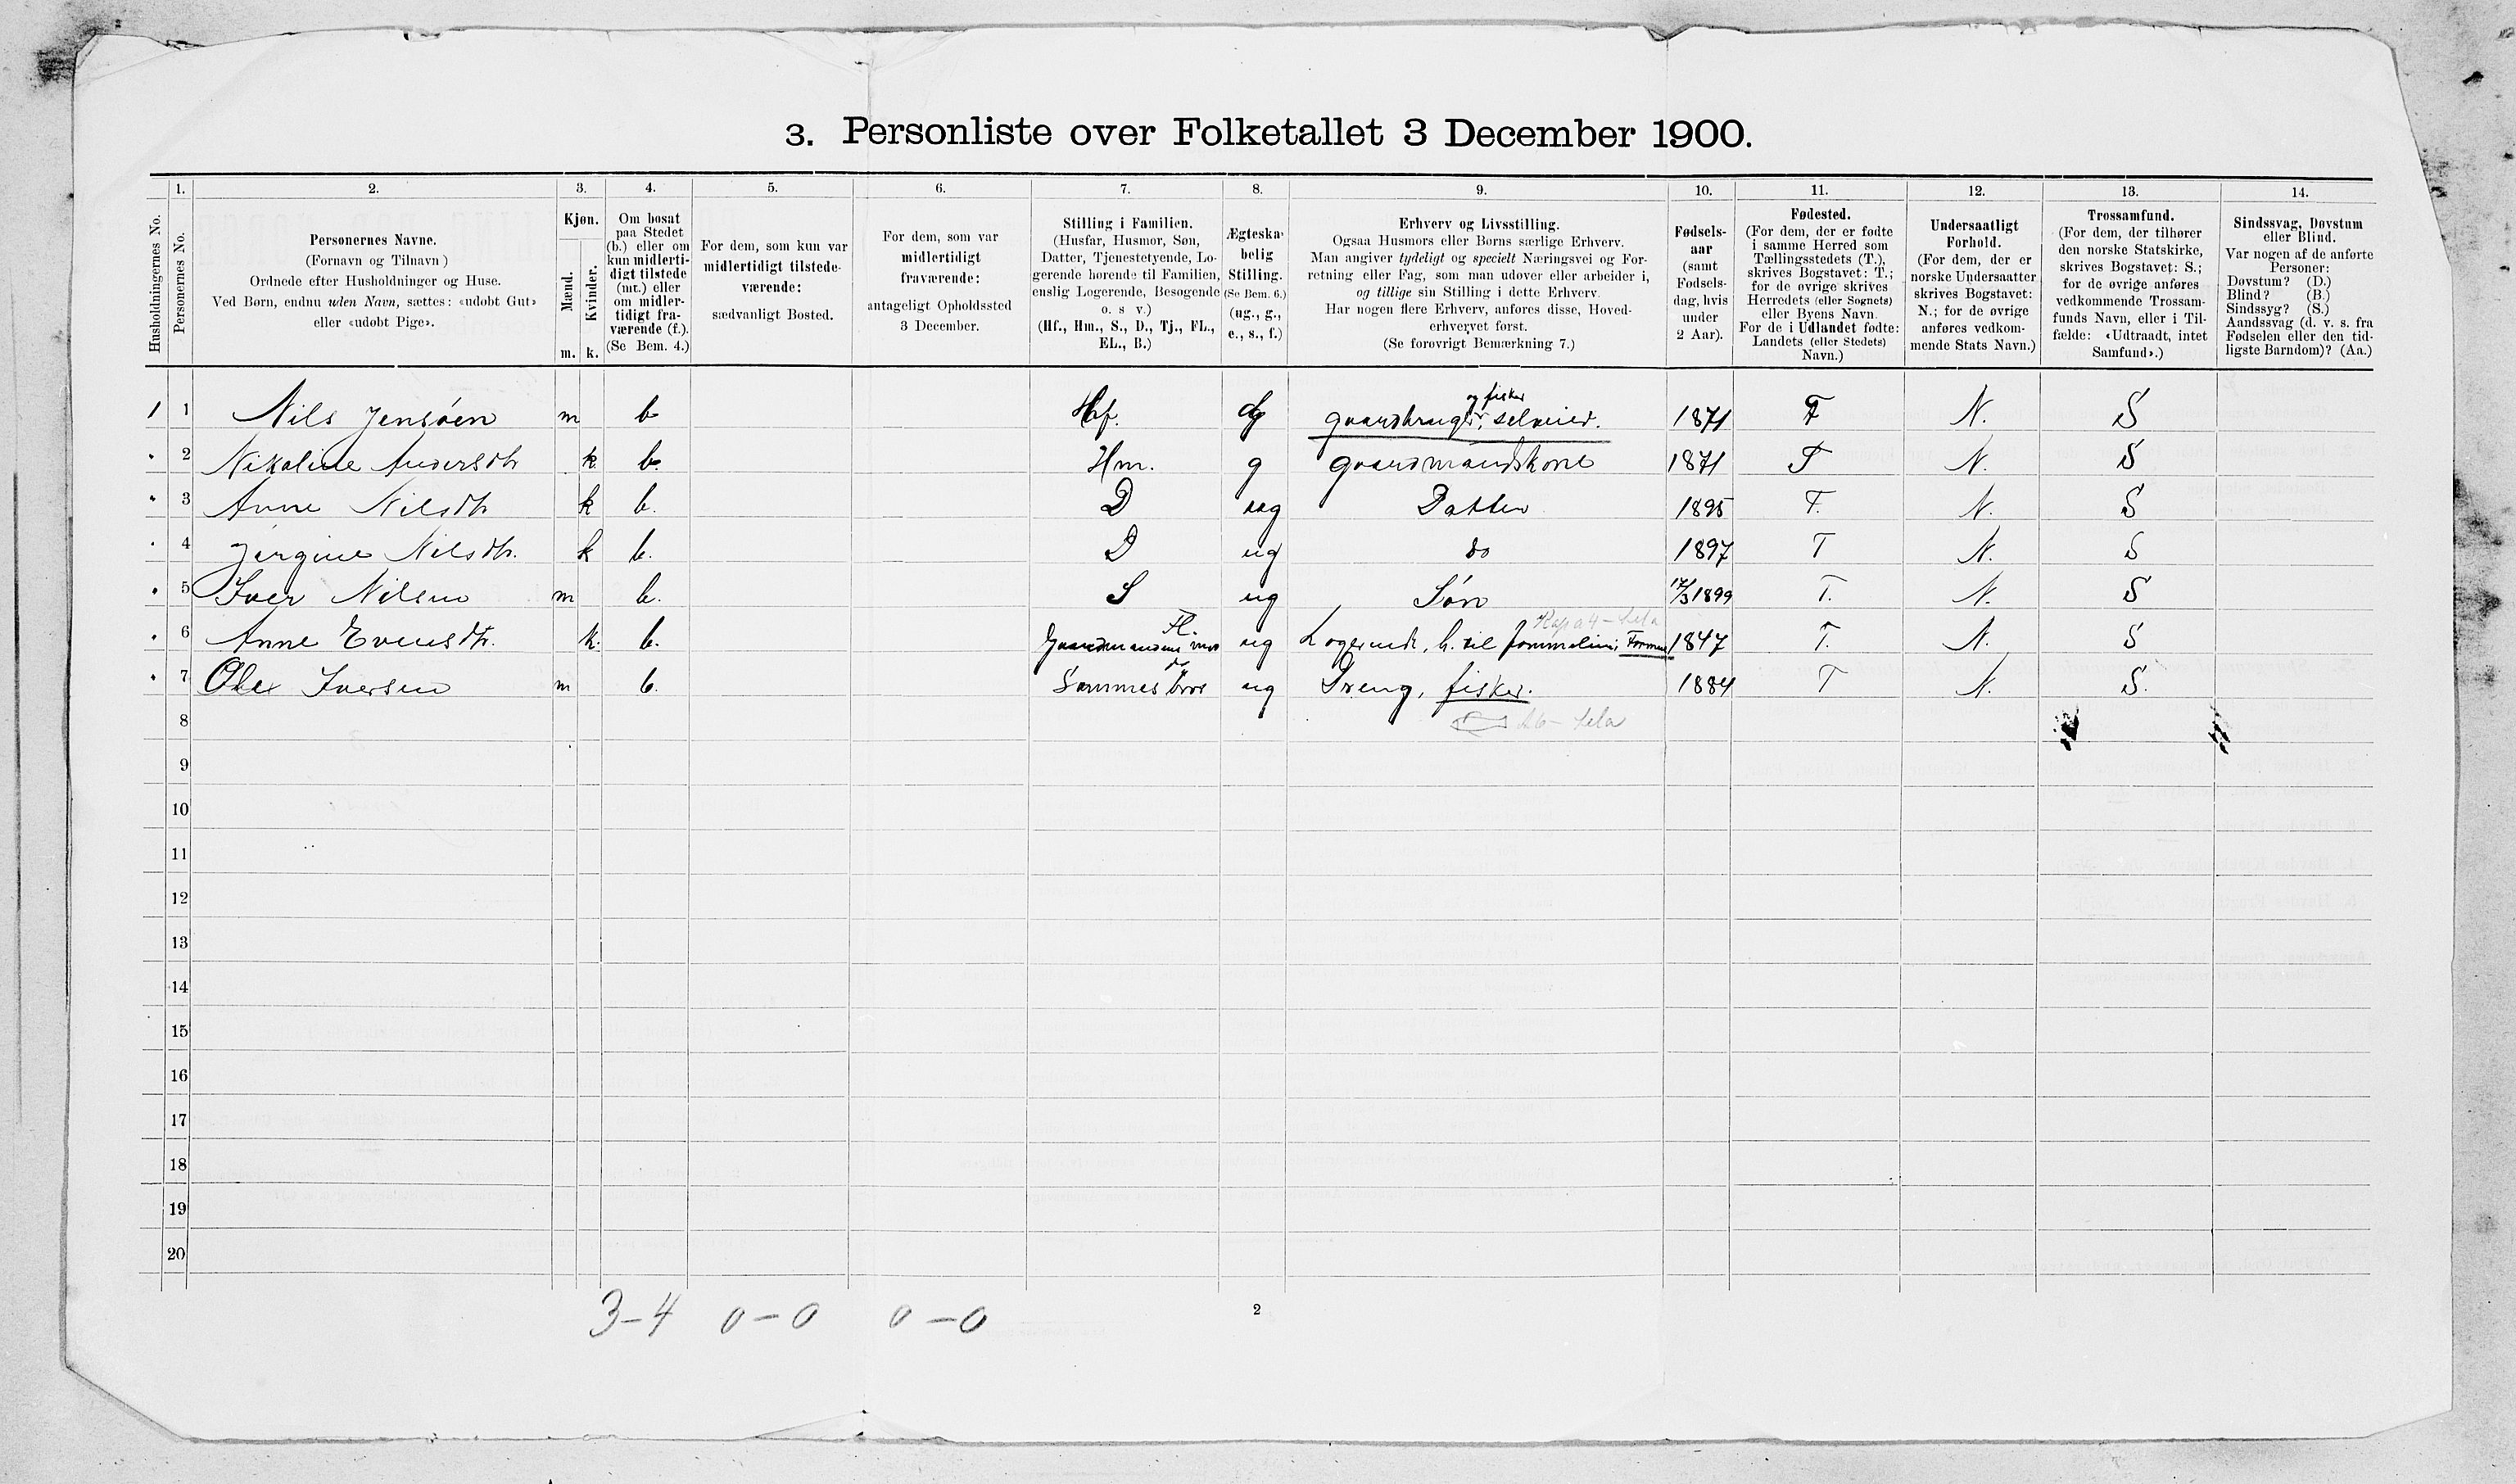 3. Personliste over Folketallet 3 December 1900.
Husholdningernes No.
1. Personernes No.
2. Personernes Navne.
(Fornavn og Tilnavn)
Ordnede efter Husholdninger og Huse.
Ved Børn, endnu uden Navn, sættes: «udøbt Gut»
eller «udøbt Pige».
3. Kjøn.
Mænd. m.
Kvinder. k.
4. Om bosat
paa Stedet
(b.) eller om
kun midlerti-
digt tilstede
(mt.) eller
om midler-
tidigt fra-
værende (f.).
(Se Bem. 4.)
5. For dem, som kun var
midlertidigt tilstede-
værende:
sædvanligt Bosted.
6. For dem, som var
midlertidigt
fraværende:
antageligt Opholdssted
3 December.
7. Stilling i Familien.
(Husfar, Husmor, Søn,
Datter, Tjenestetyende, Lo-
gerende hørende til Familien,
enslig Logerende, Besøgende
o. s v.)
(Hf., Hm., S., D., Tj., FL.,
EL., B.)
8. Ægteska-
belig
Stilling.
(Se Bem. 6.)
(ug., g.,
e., s., f.)
9. Erhverv og Livsstilling.
Ogsaa Husmors eller Børns særlige Erhverv.
Man angiver tydeligt og specielt Næringsvei og For-
retning eller Fag, som man udøver eller arbeider i,
og tillige sin Stilling i dette Erhverv.
Har nogen flere Erhverv, anføres disse, Hoved-
erhvervet først.
(Se forøvrigt Bemærkning 7.)
10. Fødsels-
aar
(samt
Fødsels-
dag, hvis
under
2 Aar).
11. Fødested.
(For dem, der er fødte
i samme Herred som
Tællingsstedets (T.),
skrives Bogstavet: T.;
for de øvrige skrives
Herredets (eller Sognets)
eller Byens Navn.
For de i Udlandet fødte:
Landets (eller Stedets)
Navn.)
12. Undersaatligt
Forhold.
(For dem, der er
norske Undersaatter
skrives Bogstavet:
N.; for de øvrige
anføres vedkom-
mende Stats Navn.)
13. Trossamfund.
(For dem, der tilhører
den norske Statskirke,
skrives Bogstavet: S.;
for de øvrige anføres
vedkommende Trossam-
funds Navn, eller i Til-
fælde: «Udtraadt, intet
Samfund».)
14. Sindssvag, Døvstum
eller Blind.
Var nogen af de anførte
Personer:
Døvstum? (D.)
Blind? (B.)
Sindssyg? (S.)
Aandssvag (d. v. s. fra
Fødselen eller den tid-
ligste Barndom)? (Aa.)
og fisker
1 1 Nils Jensøen m b Hf. g gaardbruger, selveier. 1871 T N. S
" 2 Nikoline Andersdtr k b. Hm. g gaardmandskone 1871 T N. S
" 3 Anne Nilsdtr k b. D ug Datter 1895 T. N. S
" 4 Jørgine Nilsdtr. k b. D ug do 1897 T N. S
" 5 Iver Nilsen m b. S ug Søn 17/3 1899 T. N. S
Fl.
" 6 Anne Evensdtr. k. b. Gaardmandens mor ug Logerende, h. til familien; 1847 T. N. S
do
" 7 Ole Iversen m b. Sammes bror ug Dreng, fisker. 1884 T N. S.
8
9
10
11
12
13
14
15
16
17
18
19
20
3-4 0-0 0-0
2